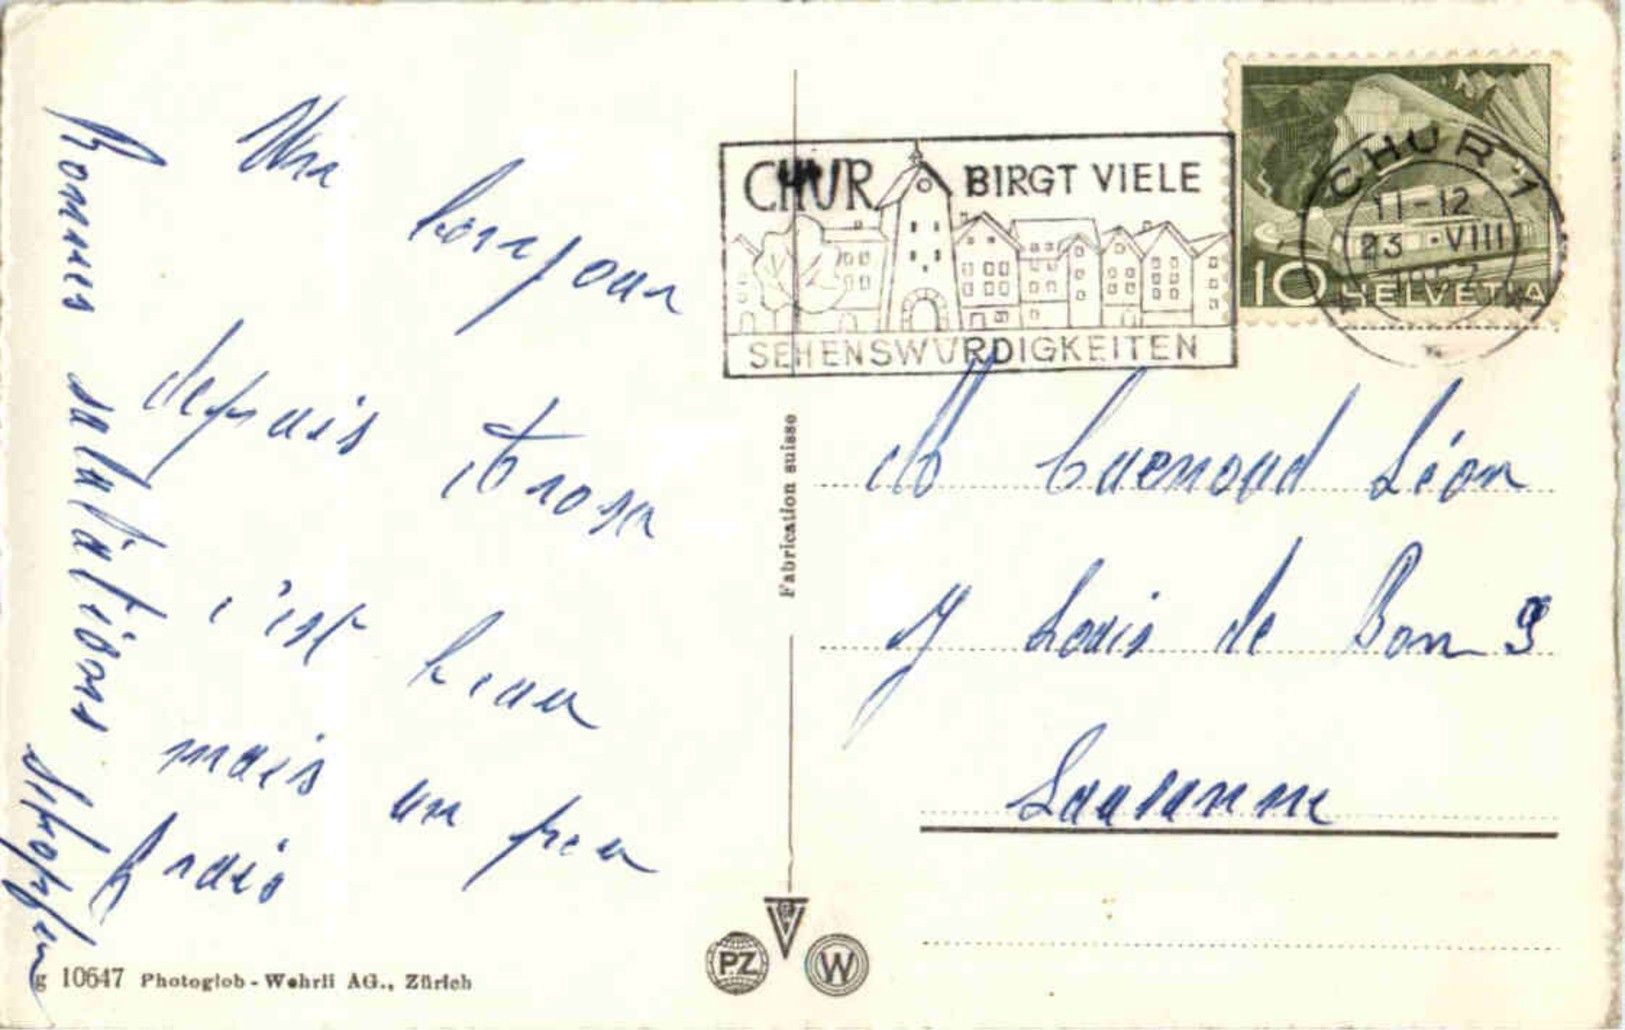 Un bonjour
depuis Arosa
c'est beau
mais un peu
frais
Bonnes salutations
CHUR BIRGT VIELE
SEHENSWÜRDIGKEITEN
CHUR 1
11-12
23.VIII
1957
10 HELVETIA
Fabrication suisse
M Cuenoud Léon
Louis de Bon 9
Lausanne
PZ W
g 10647 Photoglob-Wehrli AG., Zürich